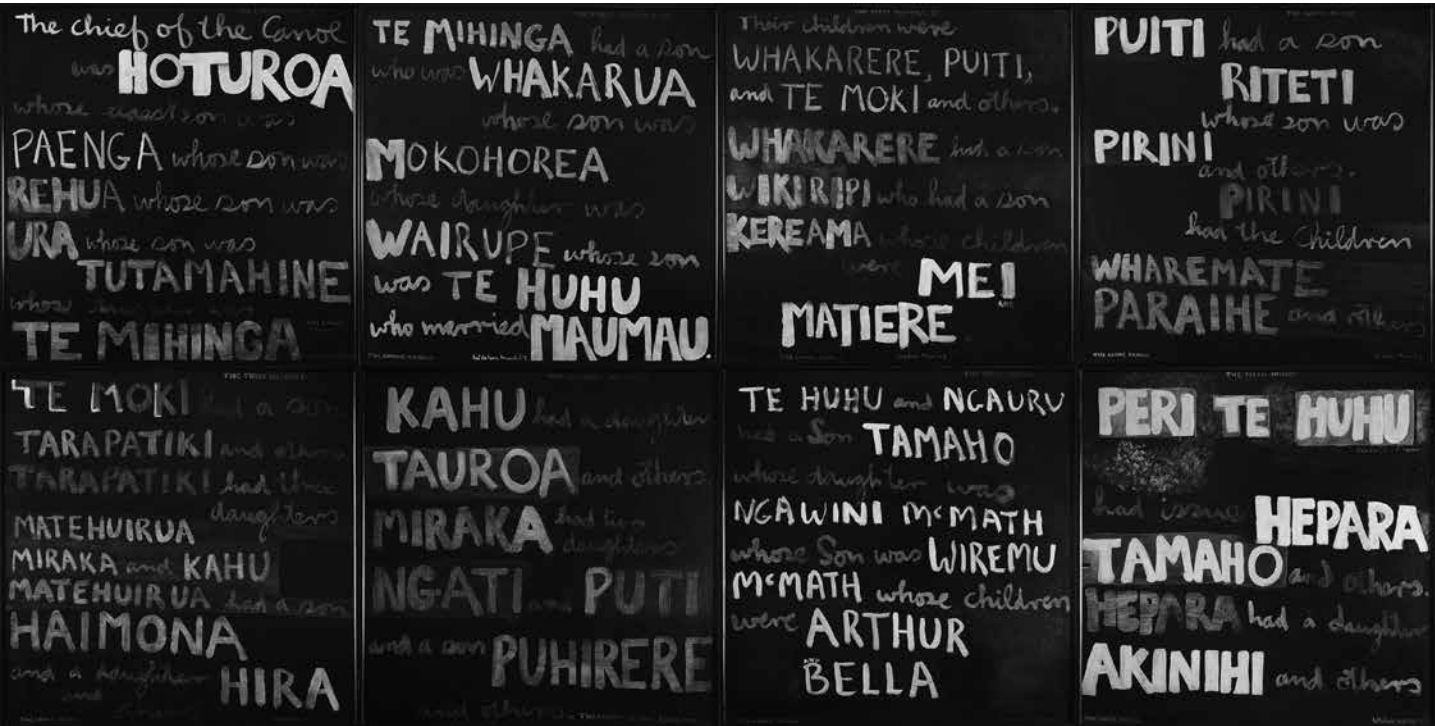 The chief of the Canoe
was HOTUROA
whose
PAENGA whose son was
REHUA whose son was
URA whose son was
TUTAMAHINE
whose
TE MIHINGA
TE MIHINGA had a son
who was WHAKARUA
whose son was
MOKOHOREA
whose daughter was
WAIRUPE whose son
was TE HUHU
who married MAUMAU.
Their children were
WHAKARERE, PUITI,
and TE MOKI and others.
WHAKARERE had a son
WIKIRIPI who had a son
KEREAMA whose children
were MEI
MATIERE
PUITI had a son
RITETI
whose son was
PIRINI
and others.
PIRINI
had the children
WHAREMATE
PARAIHE and others
TE MOKI had a son
TARAPATIKI and others
TARAPATIKI had three
daughters
MATEHUIRUA
MIRAKA and KAHU
MATEHUIRUA had a son
HAIMONA
and a daughter
HIRA
KAHU had a daughter
TAUROA and others.
MIRAKA had two
daughters
NGATI and PUTI
and a son PUHIRERE
and others
TE HUHU and NGAURU
had a Son TAMAHO
whose daughter was
NGAWINI McMATH
whose Son was WIREMU
McMATH whose children
were ARTHUR
BELLA
PERI TE HUHU
had issue HEPARA
TAMAHO and others.
HEPARA had a daughter
AKINIHI and others